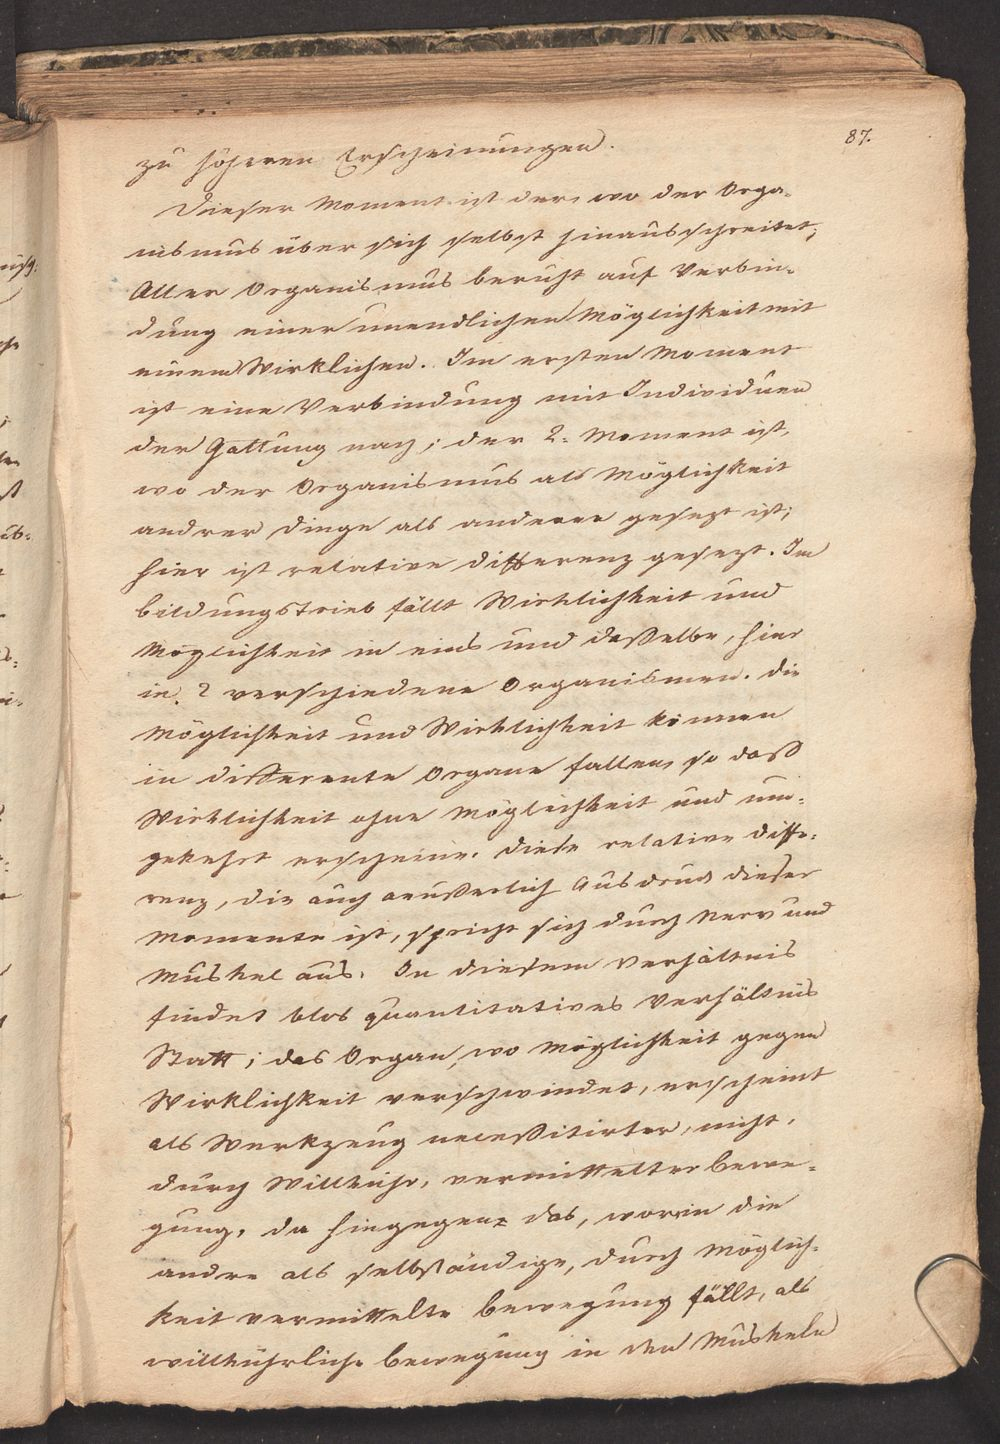 87.
zu höheren Erscheinungen.
Dieser Moment ist der, wo der Orga-
nismus über sich selbst hinausschreitet;
Aller Organismus beruht auf Verbin-
dung einer unendlichen Möglichkeit mit
einem Wirklichen. Im ersten Moment
ist eine Verbindung mit Individuen
der Gattung nach; der 2. Moment ist,
wo der Organismus als Möglichkeit
andrer Dinge als anderer gesezt ist;
hier ist relative Differenz gesezt. Im
Bildungstrieb fällt Wirklichkeit und
Möglichkeit in eins und dasselbe, hier
in 2 verschiedene Organismen. Die
Möglichkeit und Wirklichkeit können
in differente Organe fallen, so daß
Wirklichkeit ohne Möglichkeit und um-
gekehrt erscheine. Diese relative Diffe-
renz, die auch aeußerlich Ausdruck dieser
Momente ist, spricht sich durch Nerv und
Muskel aus. In diesem Verhältnis
findet blos quantitatives Verhältnis
Statt; das Organ, wo Möglichkeit gegen
Wirklichkeit verschwindet, erscheint
als Werkzeug necessitirter, nicht
durch Willkühr, vermittelter Bewe-
gung, da hingegen das, worin die
andre als selbständige, durch Möglich-
keit vermittelte Bewegung fällt, als
willkührliche Bewegung in den Muskeln